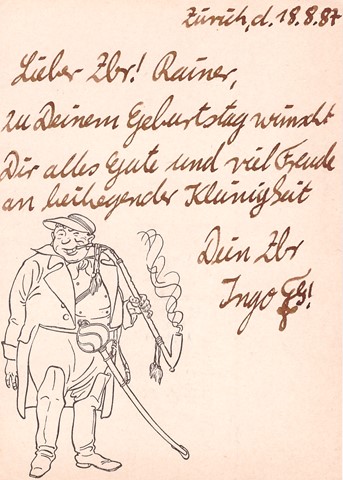 Zürich, d. 18.8.87
Lieber Zbr! Rainer,
zu Deinem Geburtstag wünscht
Dir alles Gute und viel Freude
an beiliegender Kleinigkeit
Dein Zbr
Ingo